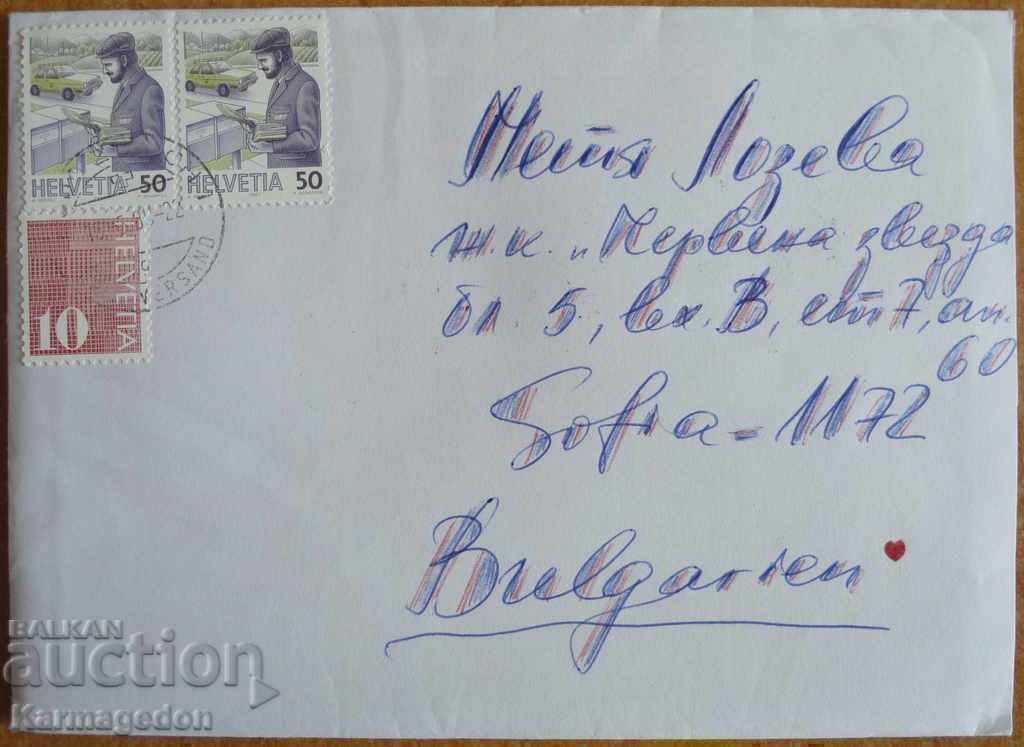 HELVETIA 50
HELVETIA 50
HELVETIA
10
VERSAND
Метя Лозева
ж.к. „Червена звезда
бл. 5, вх. В, ет 7, ап.
60
Sofia - 1172
Bulgarien
BALKAN
auction
Karmagedon